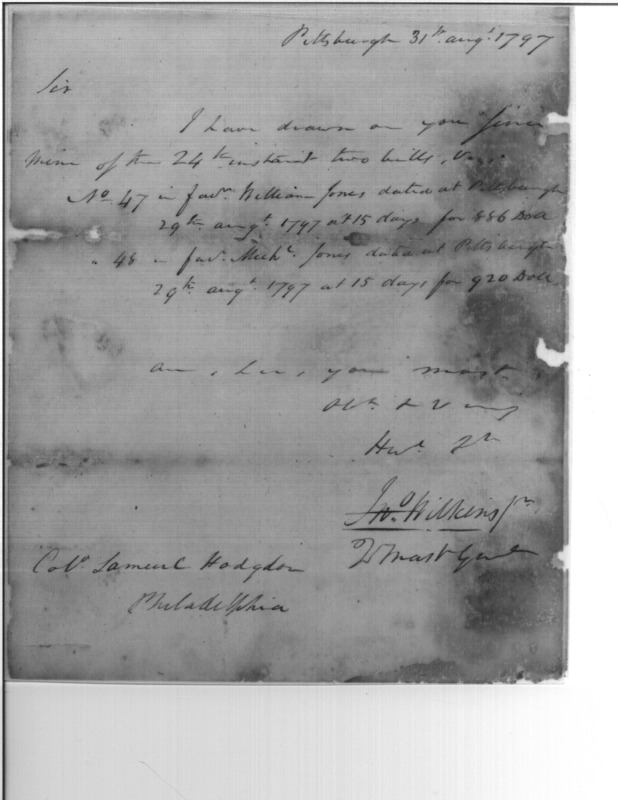 Pittsburgh 31st augt. 1797
Sir
I have drawn on you since
mine of the 24th instant two bills, Viz.
No. 47 in favr. William Jones dated at Pittsburgh
29th augt. 1797 at 15 days for 886 Doll
" 48 in favr. Michl. Jones dated at Pittsburgh
29th augt. 1797 at 15 days for 920 Doll
am, Sir, your most
Obt. & Very
Huml. Sr
Jno. Wilkins Jr.
Qr Mast Genl
Colo. Samuel Hodgdon
Philadelphia